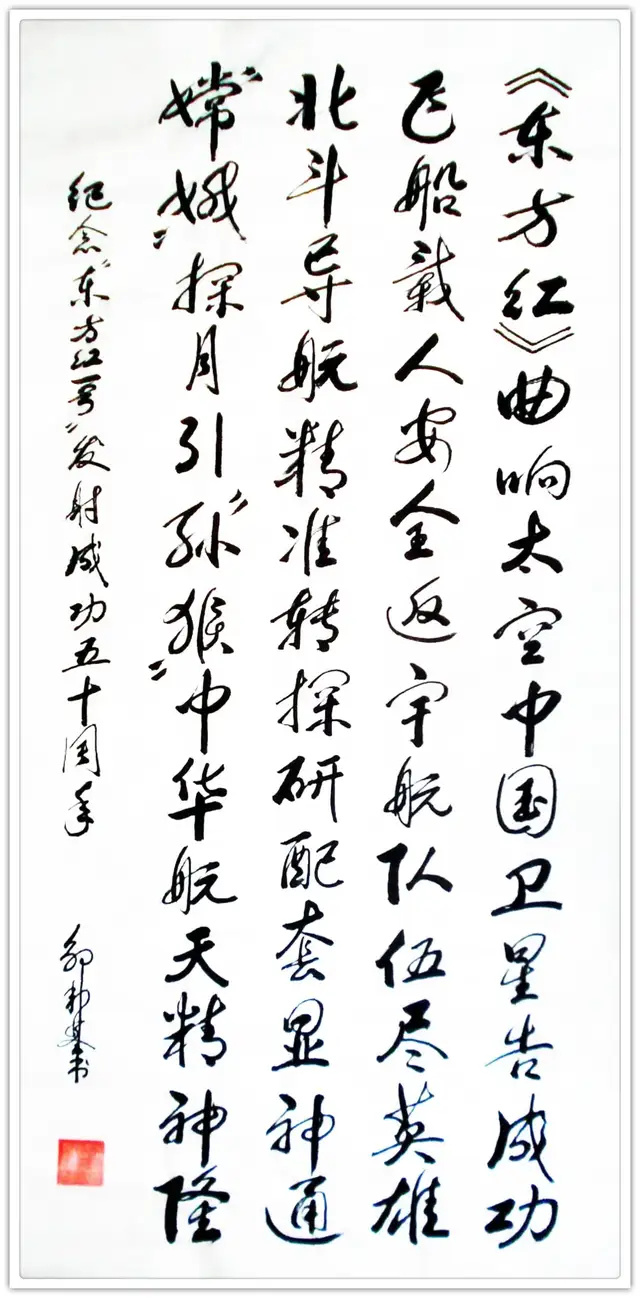 《东方红》曲响太空中国卫星告成功
飞船载人安全返宇航队伍尽英雄
北斗导航精准转探研配套显神通
“嫦娥”探月引“孙猴”中华航天精神隆
纪念“东方红一号”发射成功五十周年
书